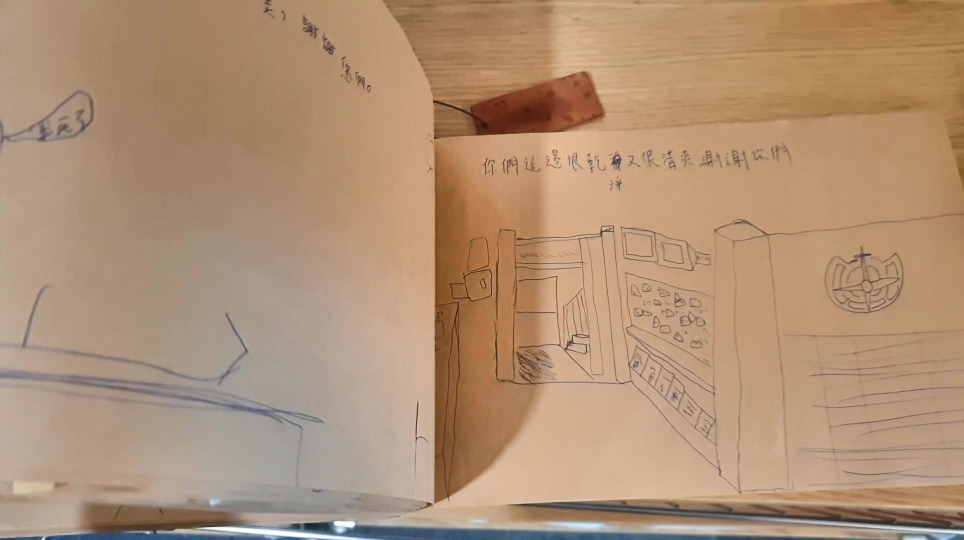 美,謝謝
您們。
死了
你們這邊很乾淨又很清爽謝謝你們